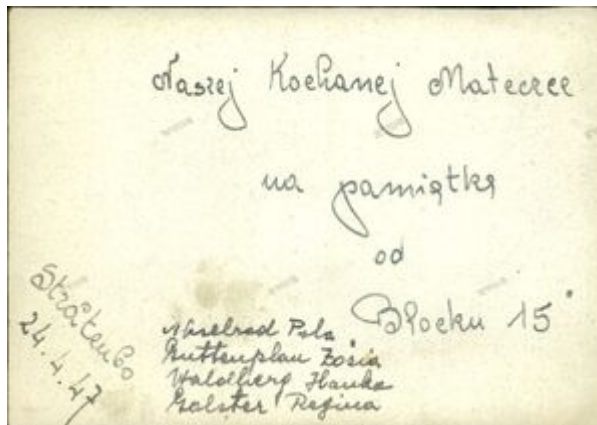 Naszej Kochanej Mateczce
na pamiątkę
od
Blocku 15
24.4.47
Akselrad Pola
Guttenplan Zosia
Waldberg Hanka
Galster Regina